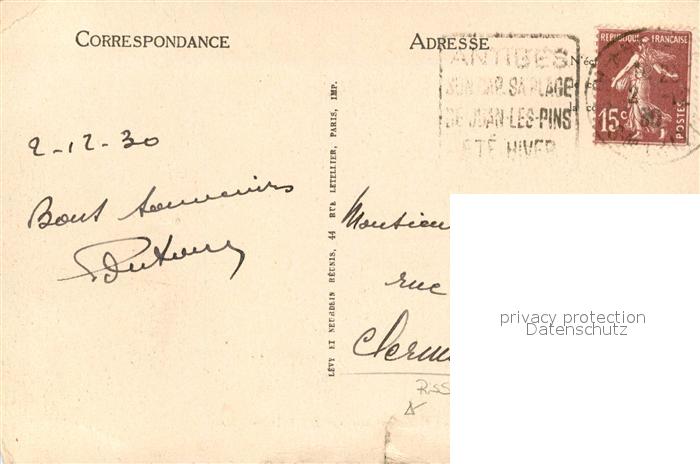 CORRESPONDANCE
ADRESSE
ANTIBES
SON CAP. SA PLAGE
DE JUAN-LES-PINS
ÉTÉ HIVER
REPUBLIQUE FRANÇAISE
15c
POSTES
2-12-30
Bons souvenirs
LÉVY ET NEURDEIN RÉUNIS, 44 RUE LETELLIER, PARIS, IMP.
Monsieu
rue
Clerm
privacy protection
Datenschutz